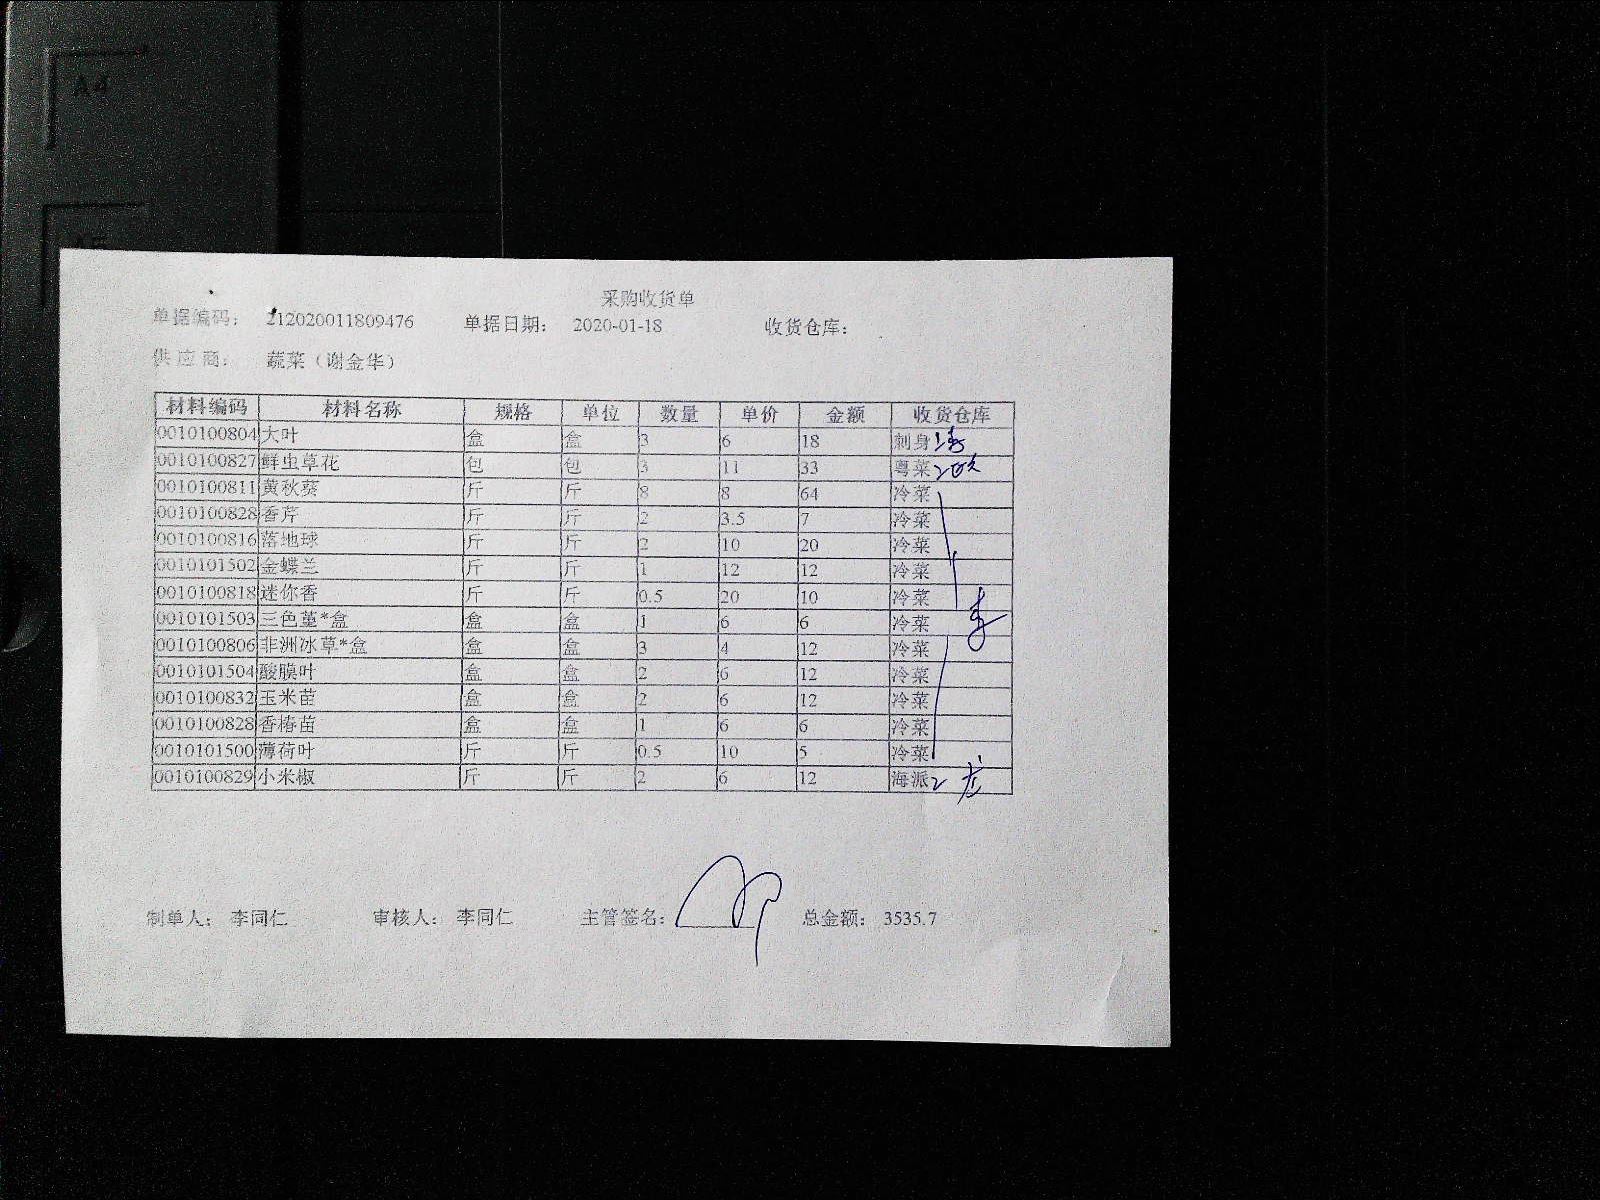 A4
A5
采购收货单
单据编码: 212020011809476 单据日期: 2020-01-18 收货仓库:
供应商: 蔬菜（谢金华）
材料编码 材料名称 规格 单位 数量 单价 金额 收货仓库
0010100804 大叶 盒 盒 3 6 18 刺身
0010100827 鲜虫草花 包 包 3 11 33 粤菜
0010100811 黄秋葵 斤 斤 8 8 64 冷菜
0010100828 香芹 斤 斤 2 3.5 7 冷菜
0010100816 落地球 斤 斤 2 10 20 冷菜
0010101502 金蝶兰 斤 斤 1 12 12 冷菜
0010100818 迷你香 斤 斤 0.5 20 10 冷菜
0010101503 三色堇*盒 盒 盒 1 6 6 冷菜
0010100806 非洲冰草*盒 盒 盒 3 4 12 冷菜
0010101504 酸膜叶 盒 盒 2 6 12 冷菜
0010100832 玉米苗 盒 盒 2 6 12 冷菜
0010100828 香椿苗 盒 盒 1 6 6 冷菜
0010101500 薄荷叶 斤 斤 0.5 10 5 冷菜
0010100829 小米椒 斤 斤 2 6 12 海派
制单人: 李同仁 审核人: 李同仁 主管签名: 总金额: 3535.7